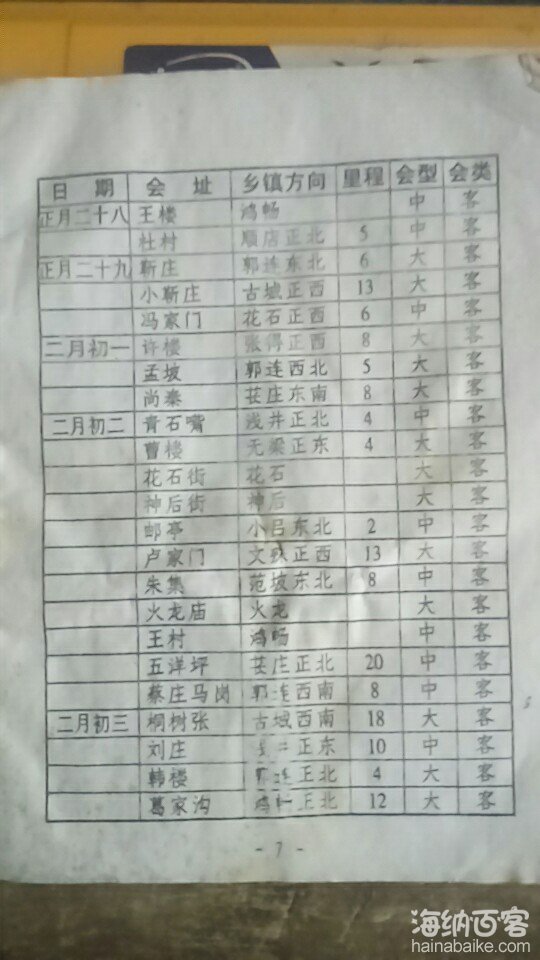 日 期 会 址 乡镇方向 里程 会型 会类
正月二十八 王楼 鸿畅 中 客
杜村 顺店正北 5 中 客
正月二十九 靳庄 郭连东北 6 大 客
小靳庄 古城正西 13 大 客
冯家门 花石正西 6 中 客
二月初一 许楼 张得正西 8 大 客
孟坡 郭连西北 5 大 客
尚泰 苌庄东南 8 大 客
二月初二 青石嘴 浅井正北 4 中 客
曹楼 无梁正东 4 大 客
花石街 花石 大 客
神后街 神后 大 客
邮亭 小吕东北 2 中 客
卢家门 文殊正西 13 大 客
朱集 范坡东北 8 中 客
火龙庙 火龙 大 客
王村 鸿畅 中 客
五洋坪 苌庄正北 20 中 客
蔡庄马岗 郭连西南 8 中 客
二月初三 桐树张 古城西南 18 大 客
刘庄 正东 10 中 客
韩楼 郭连正北 4 大 客
葛家沟 鸿畅正北 12 大 客
- 7 -
海纳百客
hainabaike.com